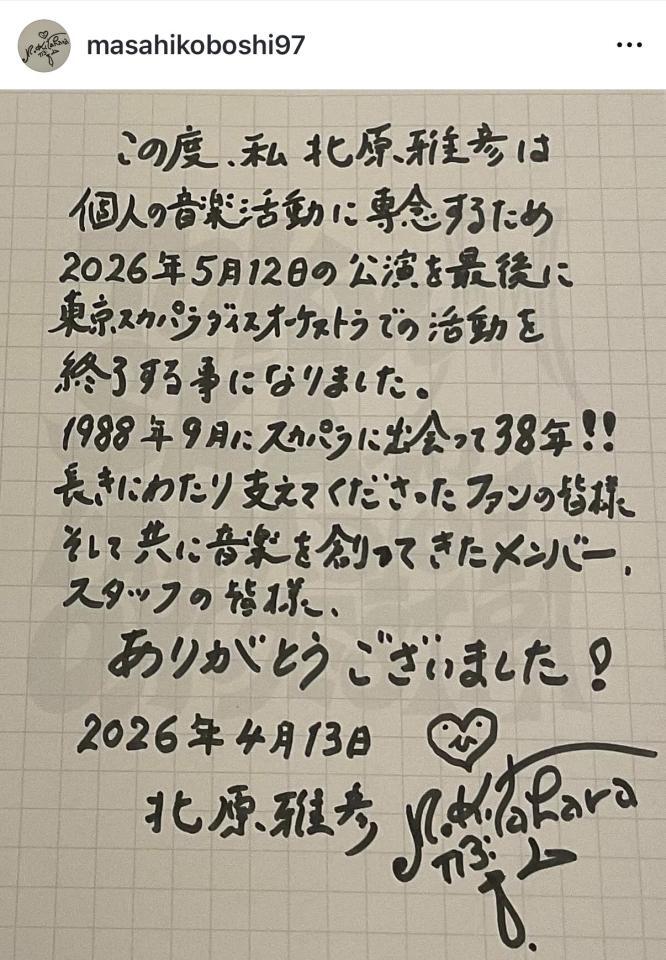 masahikoboshi97
この度、私 北原雅彦は
個人の音楽活動に専念するため
2026年5月12日の公演を最後に
東京スカパラダイスオーケストラでの活動を
終了する事になりました。
1988年9月にスカパラに出会って38年!!
長きにわたり支えてくださったファンの皆様
そして共に音楽を創ってきたメンバー、
スタッフの皆様、
ありがとうございました!
2026年4月13日
北原雅彦
M.Kitahara